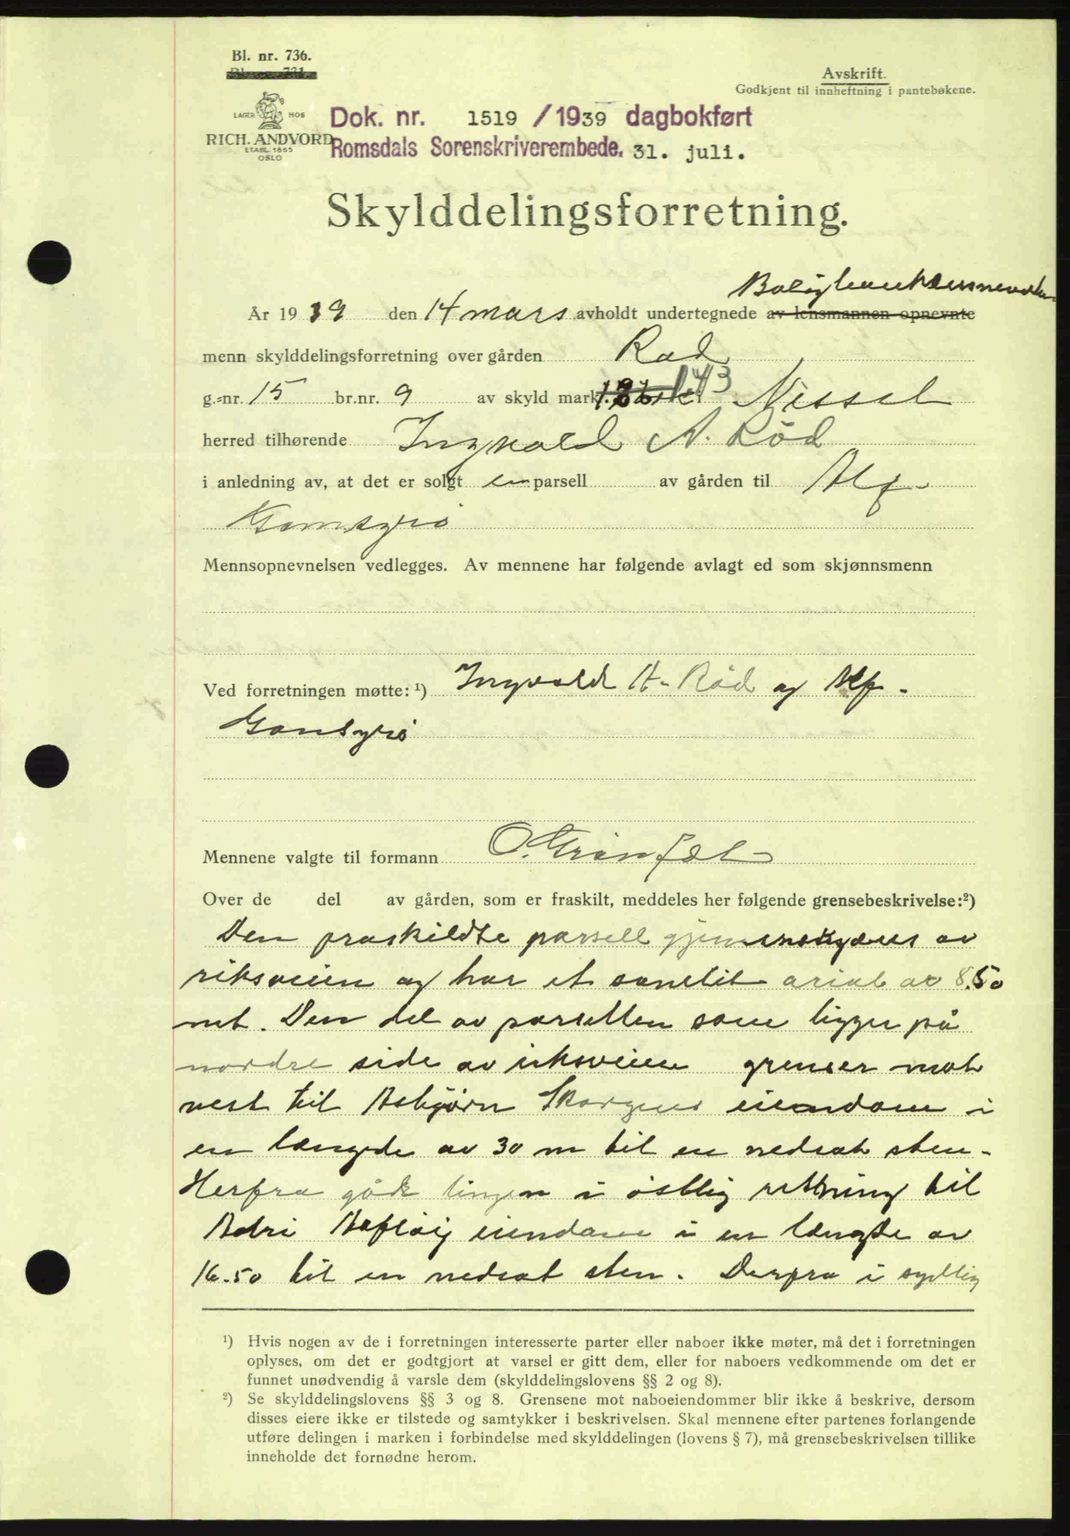 Bl. nr. 736.
Avskrift.
Godkjent til innheftning i pantebøkene.
LAGER HOS
RICH. ANDVORD
ETABL. 1865
OSLO
Dok. nr. 1519 /1939 dagbokført
Romsdals Sorenskriverembede. 31. juli.
Skylddelingsforretning.
År 1939 den 14 mars avholdt undertegnede av lensmannen opnevnte
menn skylddelingsforretning over gården Rød
g.-nr. 15 br.nr. 9 av skyld mark 1.43 Nesset
herred tilhørende Ingvald A. Rød
i anledning av, at det er solgt en parsell av gården til Alf
Mennsopnevnelsen vedlegges. Av mennene har følgende avlagt ed som skjønnsmenn
Ved forretningen møtte: ¹) Ingvald A. Rød og Alf
Mennene valgte til formann O. Grønfet
Over de del av gården, som er fraskilt, meddeles her følgende grensebeskrivelse:²)
Den fraskildte parsell gjennemskjæres av
riksveien og har et samlet arial av 8.50
met. Den del av parsellen som ligger på
nordre side av riksveien grenser mot
vest til Asbjørn eiendom i
en længde av 30 m til en nedsat sten.
Herfra går lingen i østlig rettning til
eiendom i en længde av
16.50 til en nedsat sten. Derfra i sydlig
¹) Hvis nogen av de i forretningen interesserte parter eller naboer ikke møter, må det i forretningen
oplyses, om det er godtgjort at varsel er gitt dem, eller for naboers vedkommende om det er
funnet unødvendig å varsle dem (skylddelingslovens §§ 2 og 8).
²) Se skylddelingslovens §§ 3 og 8. Grensene mot naboeiendommer blir ikke å beskrive, dersom
disses eiere ikke er tilstede og samtykker i beskrivelsen. Skal mennene efter partenes forlangende
utføre delingen i marken i forbindelse med skylddelingen (lovens § 7), må grensebeskrivelsen tillike
inneholde det fornødne herom.